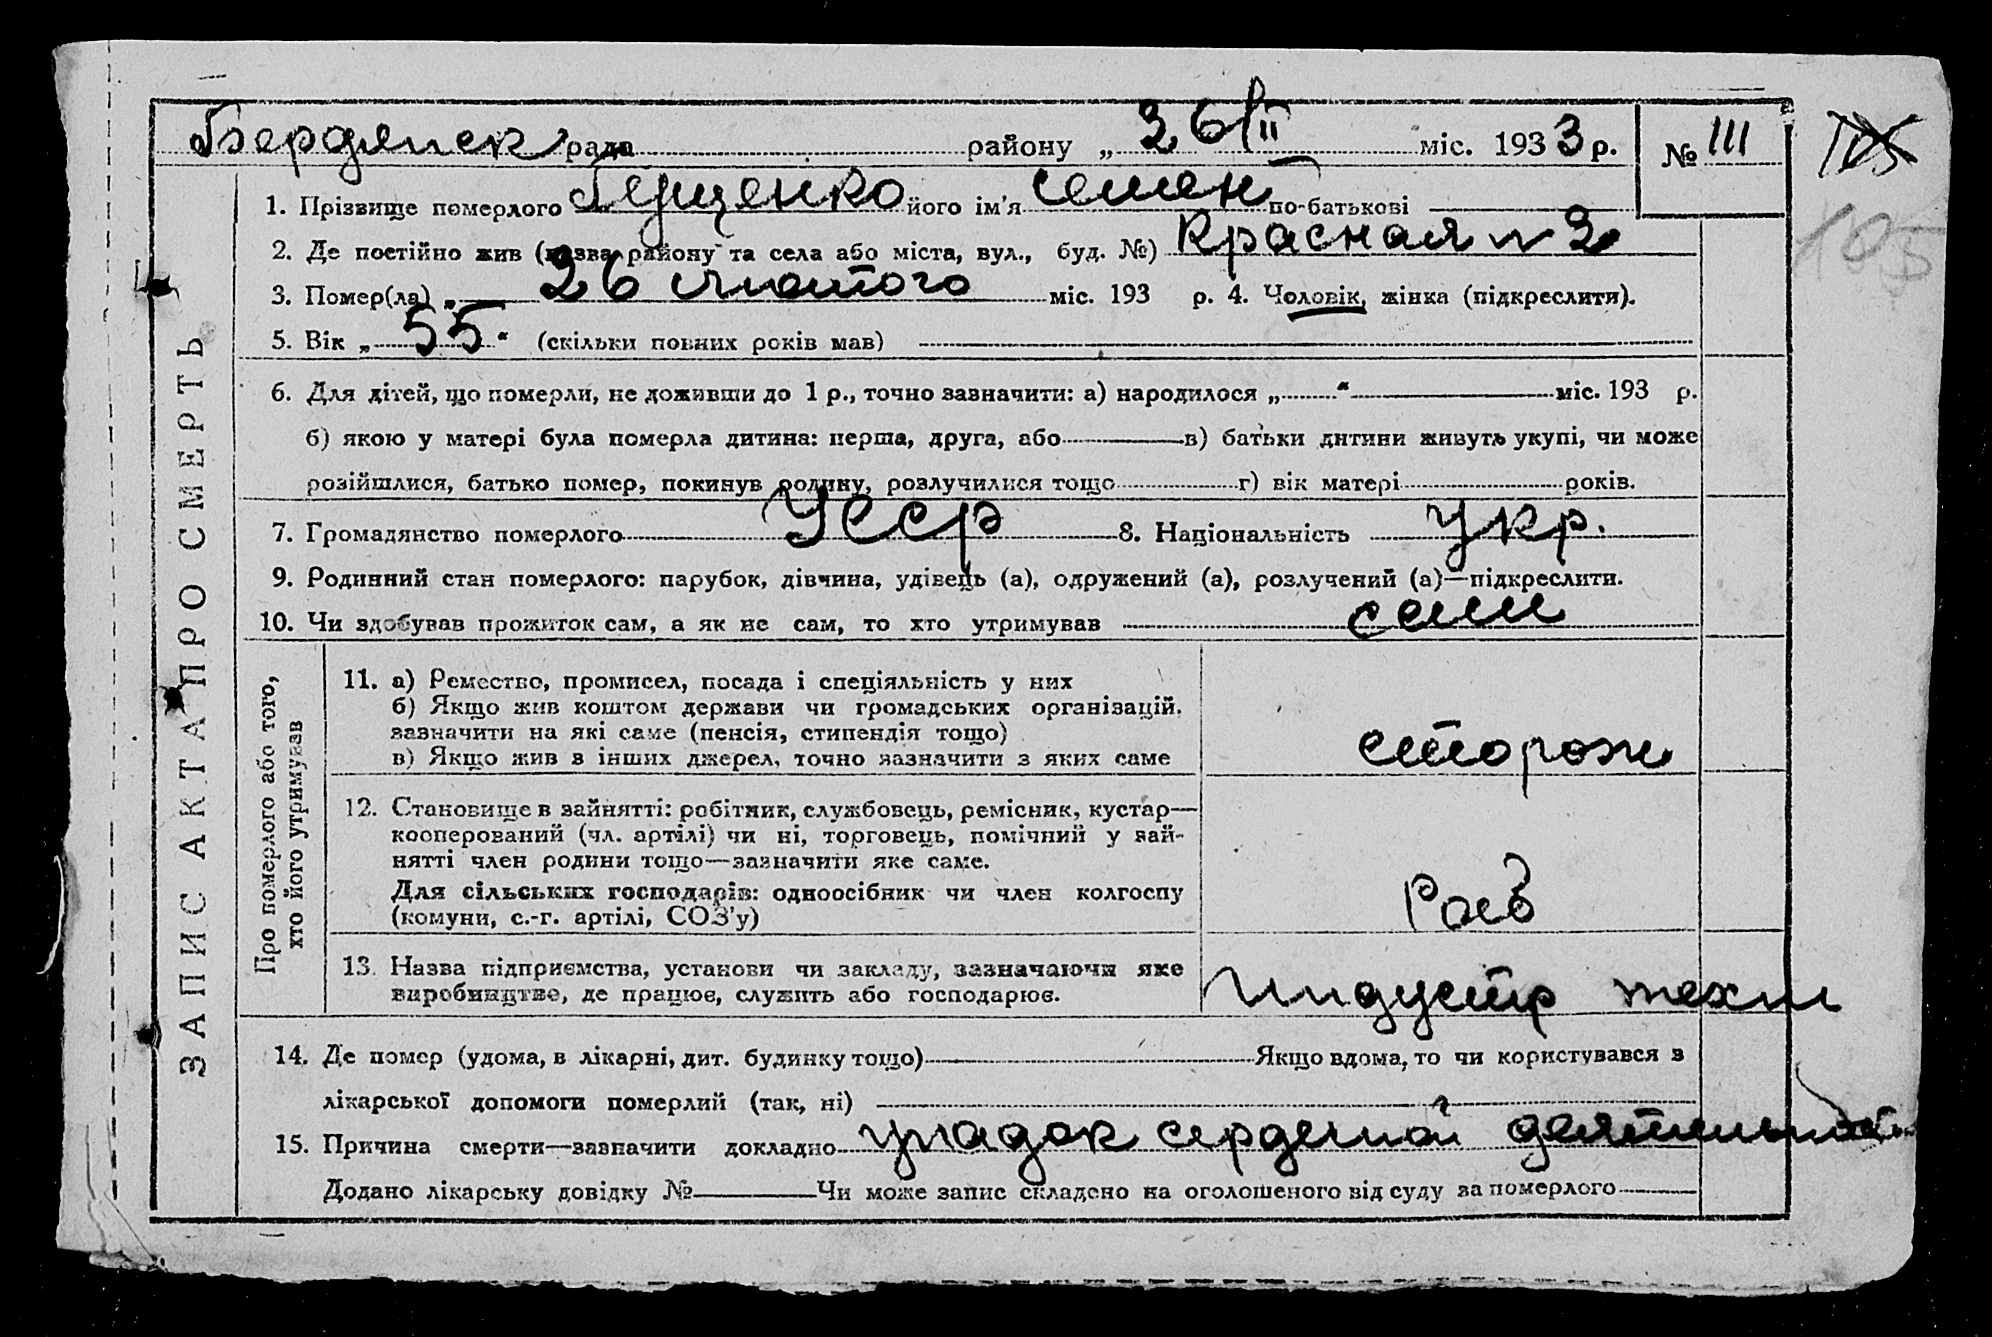 Бердянск рада району „ 26/II міс. 1933 р. № 111
105
1. Прізвище померлого його ім'я Семен по-батькові
2. Де постійно жив (назва району та села або міста, вул., буд. №) Красная № 2
3. Помер(ла) „ 26 лютого міс. 193 р. 4. Чоловік, жінка (підкреслити).
5. Вік „ 55 “ (скільки повних років мав)
6. Для дітей, що померли, не доживши до 1 р., точно зазначити: а) народилося „ “ міс. 193 р.
б) якою у матері була померла дитина: перша, друга, або в) батьки дитини живуть укупі, чи може
розійшлися, батько помер, покинув родину, розлучилися тощо г) вік матері років.
7. Громадянство померлого УССР 8. Національність Укр.
9. Родинний стан померлого: парубок, дівчина, удівець (а), одружений (а), розлучений (а)—підкреслити.
10. Чи здобував прожиток сам, а як не сам, то хто утримував сам
ЗАПИС АКТА ПРО СМЕРТЬ
Про померлого або того,
хто його утримував
11. а) Ремество, промисел, посада і спеціяльність у них
б) Якщо жив коштом держави чи громадських організацій,
зазначити на які саме (пенсія, стипендія тощо)
в) Якщо жив з інших джерел, точно зазначити з яких саме
сторож
12. Становище в зайнятті: робітник, службовець, ремісник, кустар—
кооперований (чл. артілі) чи ні, торговець, помічний у зай-
нятті член родини тощо—зазначити яке саме.
Для сільських господарів: одноосібник чи член колгоспу
(комуни, с.-г. артілі, СОЗ'у)
Раб
13. Назва підприємства, установи чи закладу, зазначаючи яке
виробництво, де працює, служить або господарює.
Индустр техн
14. Де помер (удома, в лікарні, дит. будинку тощо) Якщо вдома, то чи користувався з
лікарської допомоги померлий (так, ні)
15. Причина смерти—зазначити докладно упадок сердечной деятельност
Додано лікарську довідку № Чи може запис складено на оголошеного від суду за померлого